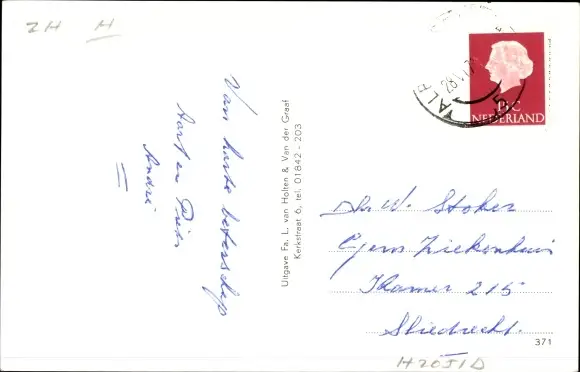 ZH H
Van harte beterschap
Aart en Piets
André
Uitgave Fa. L. van Holten & Van der Graaf
Kerkstraat 6, tel. 01842 - 203
ALP
28
15 C
NEDERLAND
W. Stoker
Gem Ziekenhuis
Kamer 215
Sliedrecht.
371
H2051D